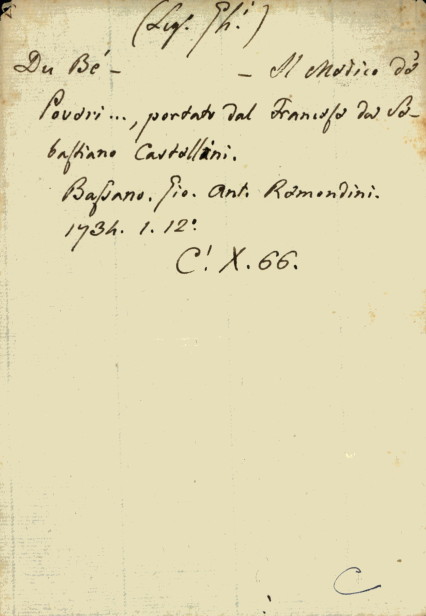 (Leg. Gh.i)
Du Bé - - Il Medico de'
Poveri..., portato dal Francese da Se-
bastiano Castellini.
Bassano. Gio. Ant. Remondini.
1734. 1. 12.o
C! X. 66.
C